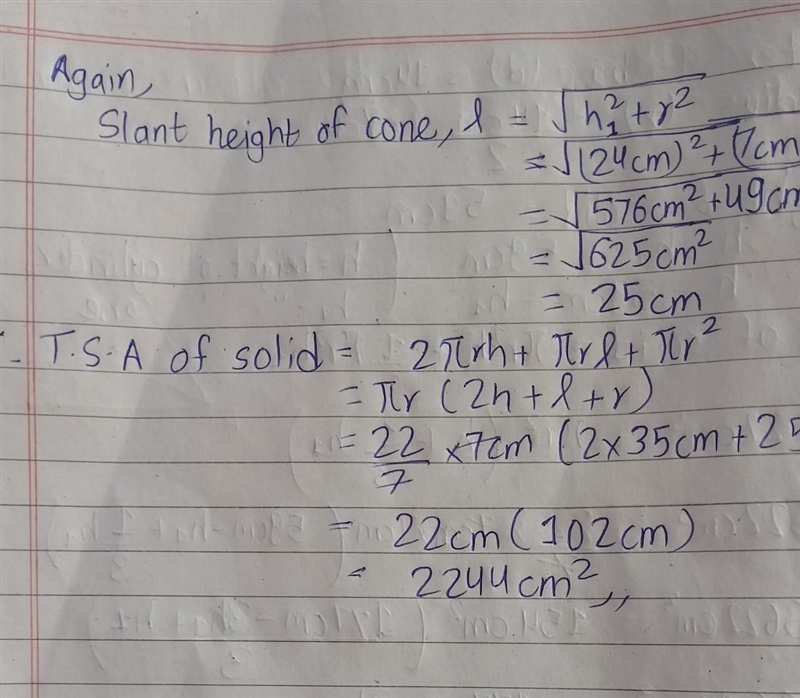 Again,
Slant height of cone, l = √(h₁² + r²)
= √((24cm)² + (7cm
= √(576cm² + 49cm
= √(625cm²)
= 25cm
T.S.A of solid = 2πrh + πrl + πr²
= πr (2h + l + r)
= 22/7 × 7cm (2×35cm + 25
= 22cm (102cm)
= 2244cm²,,